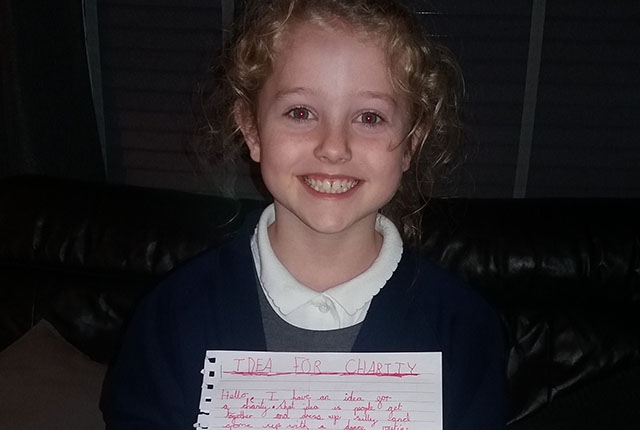 IDEA FOR CHARITY
Hello, I have an idea for
a charity. That idea is people get
together and dress up silly and
come up with a dance routine